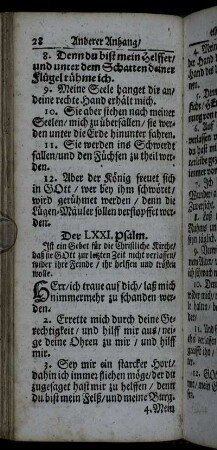 28 Anderer Anhang/
8. Denn du bist mein Helffer/
und unter dem Schatten deiner
Flügel rühme ich.
9. Meine Seele hanget dir an/
deine rechte Hand erhält mich.
10. Sie aber stehen nach meiner
Seelen mich zu überfallen/ sie wer-
den unter die Erde hinunter fahren.
11. Sie werden ins Schwerdt
fallen/und den Füchsen zu theil wer-
den.
12. Aber der König freuet sich
in GOtt/ wer bey ihm schwöret/
wird gerühmet werden/ denn die
Lügen-Mäuler sollen verstopffet wer-
den.
Der LXXI. Psalm.
Ist ein Gebet für die Christliche Kirche/
daß sie GOtt zur letzten Zeit nicht verlassen/
wider ihre Feinde/ ihr helffen und trösten
wolle.
HErr/ich traue auf dich/ laß mich
nimmermehr zu schanden wer-
den.
2. Errette mich durch deine Ge-
rechtigkeit/ und hilff mir aus/nei-
ge deine Ohren zu mir/ und hilff
mir.
3. Sey mir ein starcker Hort/
dahin ich immer fliehen möge/der du
zugesaget hast mir zu helffen/ denn
du bist mein Felß/und meine Burg.
4. Mein